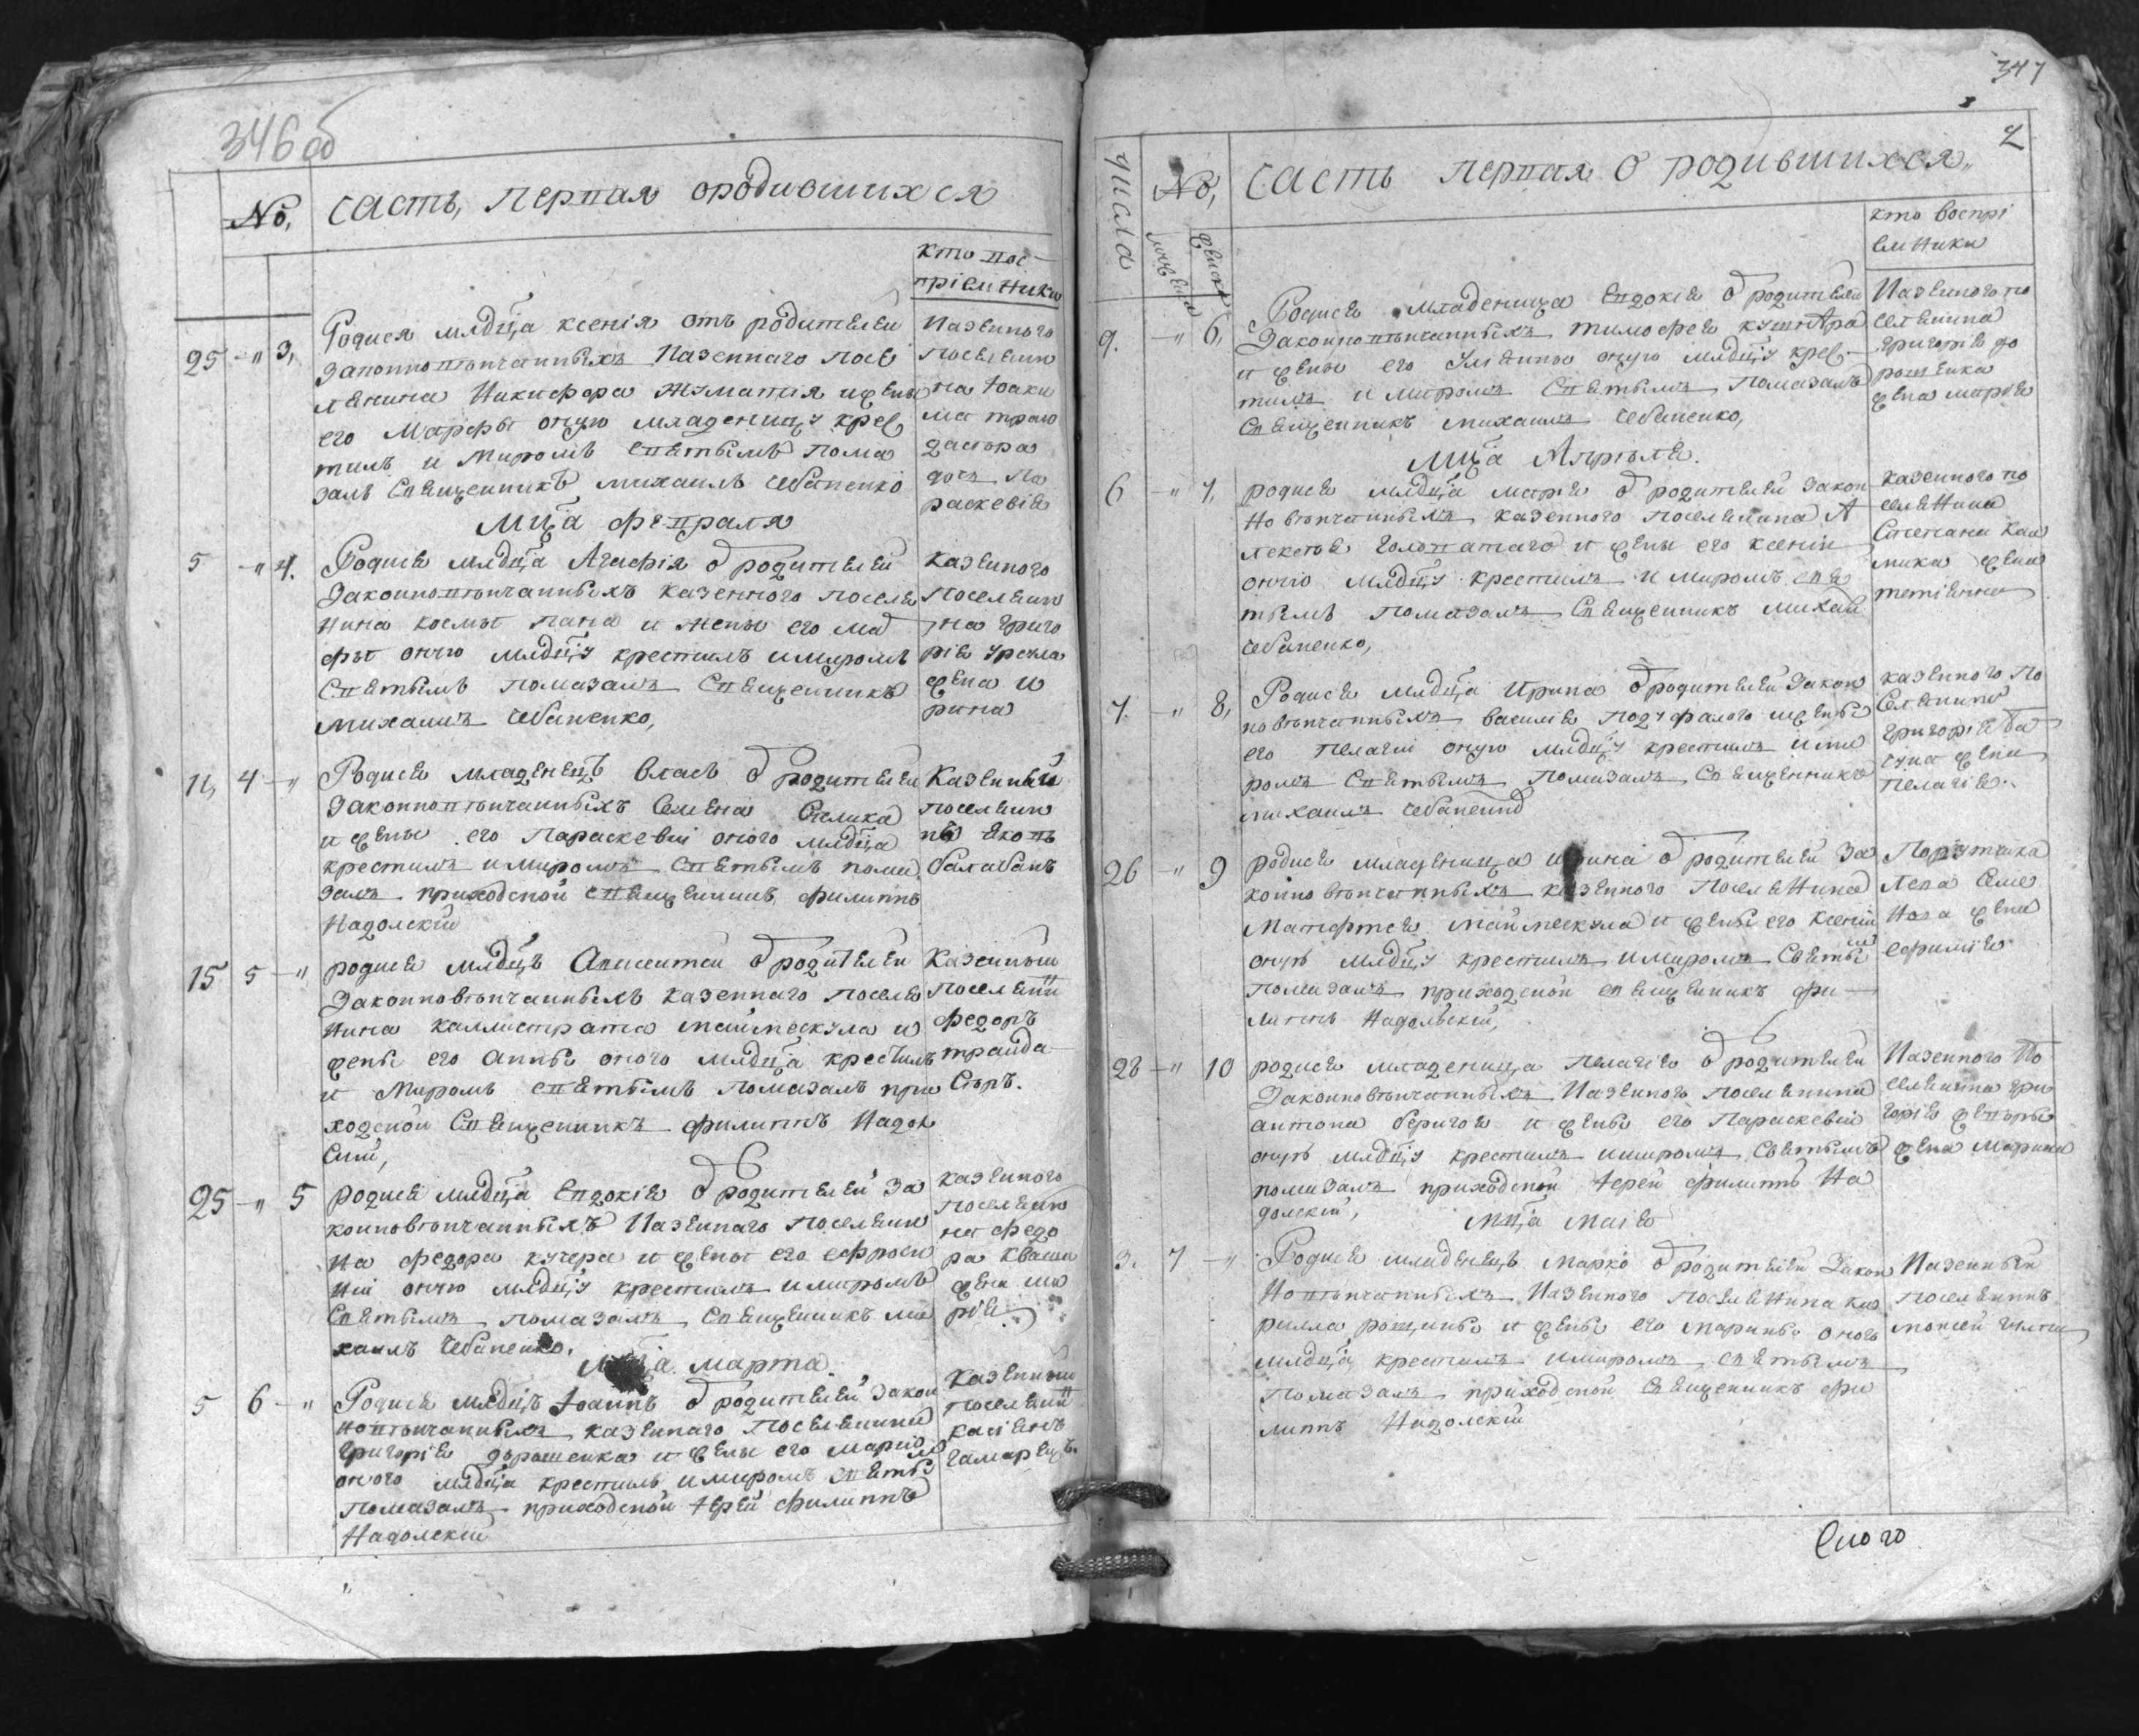 346 об
№, часть, первая ородившихся
кто вос-
пріемники
25 " 3, Родися млдца ксенія отъ родителей
законновѣнчанныхъ казеннаго посе
лянина Никифора и жены
его Марфы оную младеницу крес
тилъ и Миромъ святымъ пома
залъ Священникъ михаилъ Чебаненко
казенного
поселяни
на Іоаки
ма
дочь Па
раскевія
Мца февраля
5 " 4. Родися млдца Агафія от родителей
Законновѣнчанныхъ казенного поселя
нина космы пана и жены его
оную млдцу крестилъ имиромъ
Святымъ помазалъ Священникъ
михаилъ Чебаненко,
Казеного
поселяни
на григо
рія
жена и
рина
11, 4 " Родися младенецъ власъ от родителей
Законновѣнчанныхъ Семена
и жены его Параскевіи оного млдца
крестилъ имиромъ Святымъ пома
залъ приходской священникъ филиппъ
Надолскій
Казенный
поселяни
нъ яковъ
балабанъ
15 5 " родися млдцъ от родителей
Законновѣнчанныхъ казеннаго поселя
нина каллистрата маймескула и
жены его анны оного млдца крестилъ
и Миромъ святымъ помазалъ при
ходской Священникъ филиппъ Надол
скій,
Казенный
поселянин
федоръ
25 " 5 родися млдца Евдокія от родителей За
конновѣнчанныхъ казеннаго поселяни
на федора кучера и жены его ефроси
ніи оную млдцу крестилъ имиромъ
Святымъ помазалъ Священникъ ми
хаилъ Чебаненко.
казеного
поселяни
на федо
ра кваши
жена ма
рія
Мца марта
5 6 " Родися млдцъ Іоаннъ от родителей закон
новѣнчанныхъ казенаго Поселянина
григорія дорошенка и жены его маріи
оного млдца крестилъ имиромъ святы
помазалъ приходской Іерей филиппъ
Надолскій
казенный
поселянин
касіянъ
гамарецъ.
347
2
числа №, часть первая о родившихся
мужеска женска
кто воспрі
емники
9. " 6, Родися младеница Евдокія от родителей
Законновѣнчанныхъ тимофея кушніра
и жены его Уліянны оную млдцу крес
тилъ и миромъ Святымъ Помазалъ
Священникъ михаилъ Чебаненко,
Казенного по
селянина
григорія до
рошенка
жена марія
Мца Апрѣля.
6 " 7, родися млдца марія от родителей закон
новѣнчанныхъ казенного поселянина А
лексѣя головатаго и жены его ксеніи
оную млдцу крестилъ и миромъ свя
тымъ помазалъ Священникъ михаи
Чебаненко,
казенного по
селянина
Степана
жена
7. " 8, Родися млдца Ирина от родителей Закон
новѣнчанныхъ василія ижены
его пелагіи оную млдцу крестилъ ими
ромъ Святымъ помазалъ Священникъ
михаилъ Чебаненко
казенного По
селянина
григорія
жена
пелагія.
26 " 9 родися младеница ирина от родителей За
конновѣнчанныхъ казенного поселянина
Матфея маймескула и жены его ксеніи
онуь млдцу крестилъ имиромъ Святы
помазалъ приходской священникъ фи
липпъ Надольскій,
Порутчика
жена
ефимія
28 " 10 родися младеница пелагія от родителей
Законновѣнчанныхъ казенного поселянина
антона и жены его Параскевіи
онуь млдцу крестилъ имиромъ Святымъ
помазалъ приходской Іерей филиппъ На
долскій,
Казенного По
селянина гри
горія
жена Марина
Мца маія
3. 7 " Родися младенецъ марко от родителей Закон
новѣнчанныхъ казенного поселянина ки
рилла и жены его марины оного
млдца крестилъ имиромъ святымъ
помазалъ приходской Священникъ фи
липпъ Надолскій
Казенный
поселянинъ
моисей